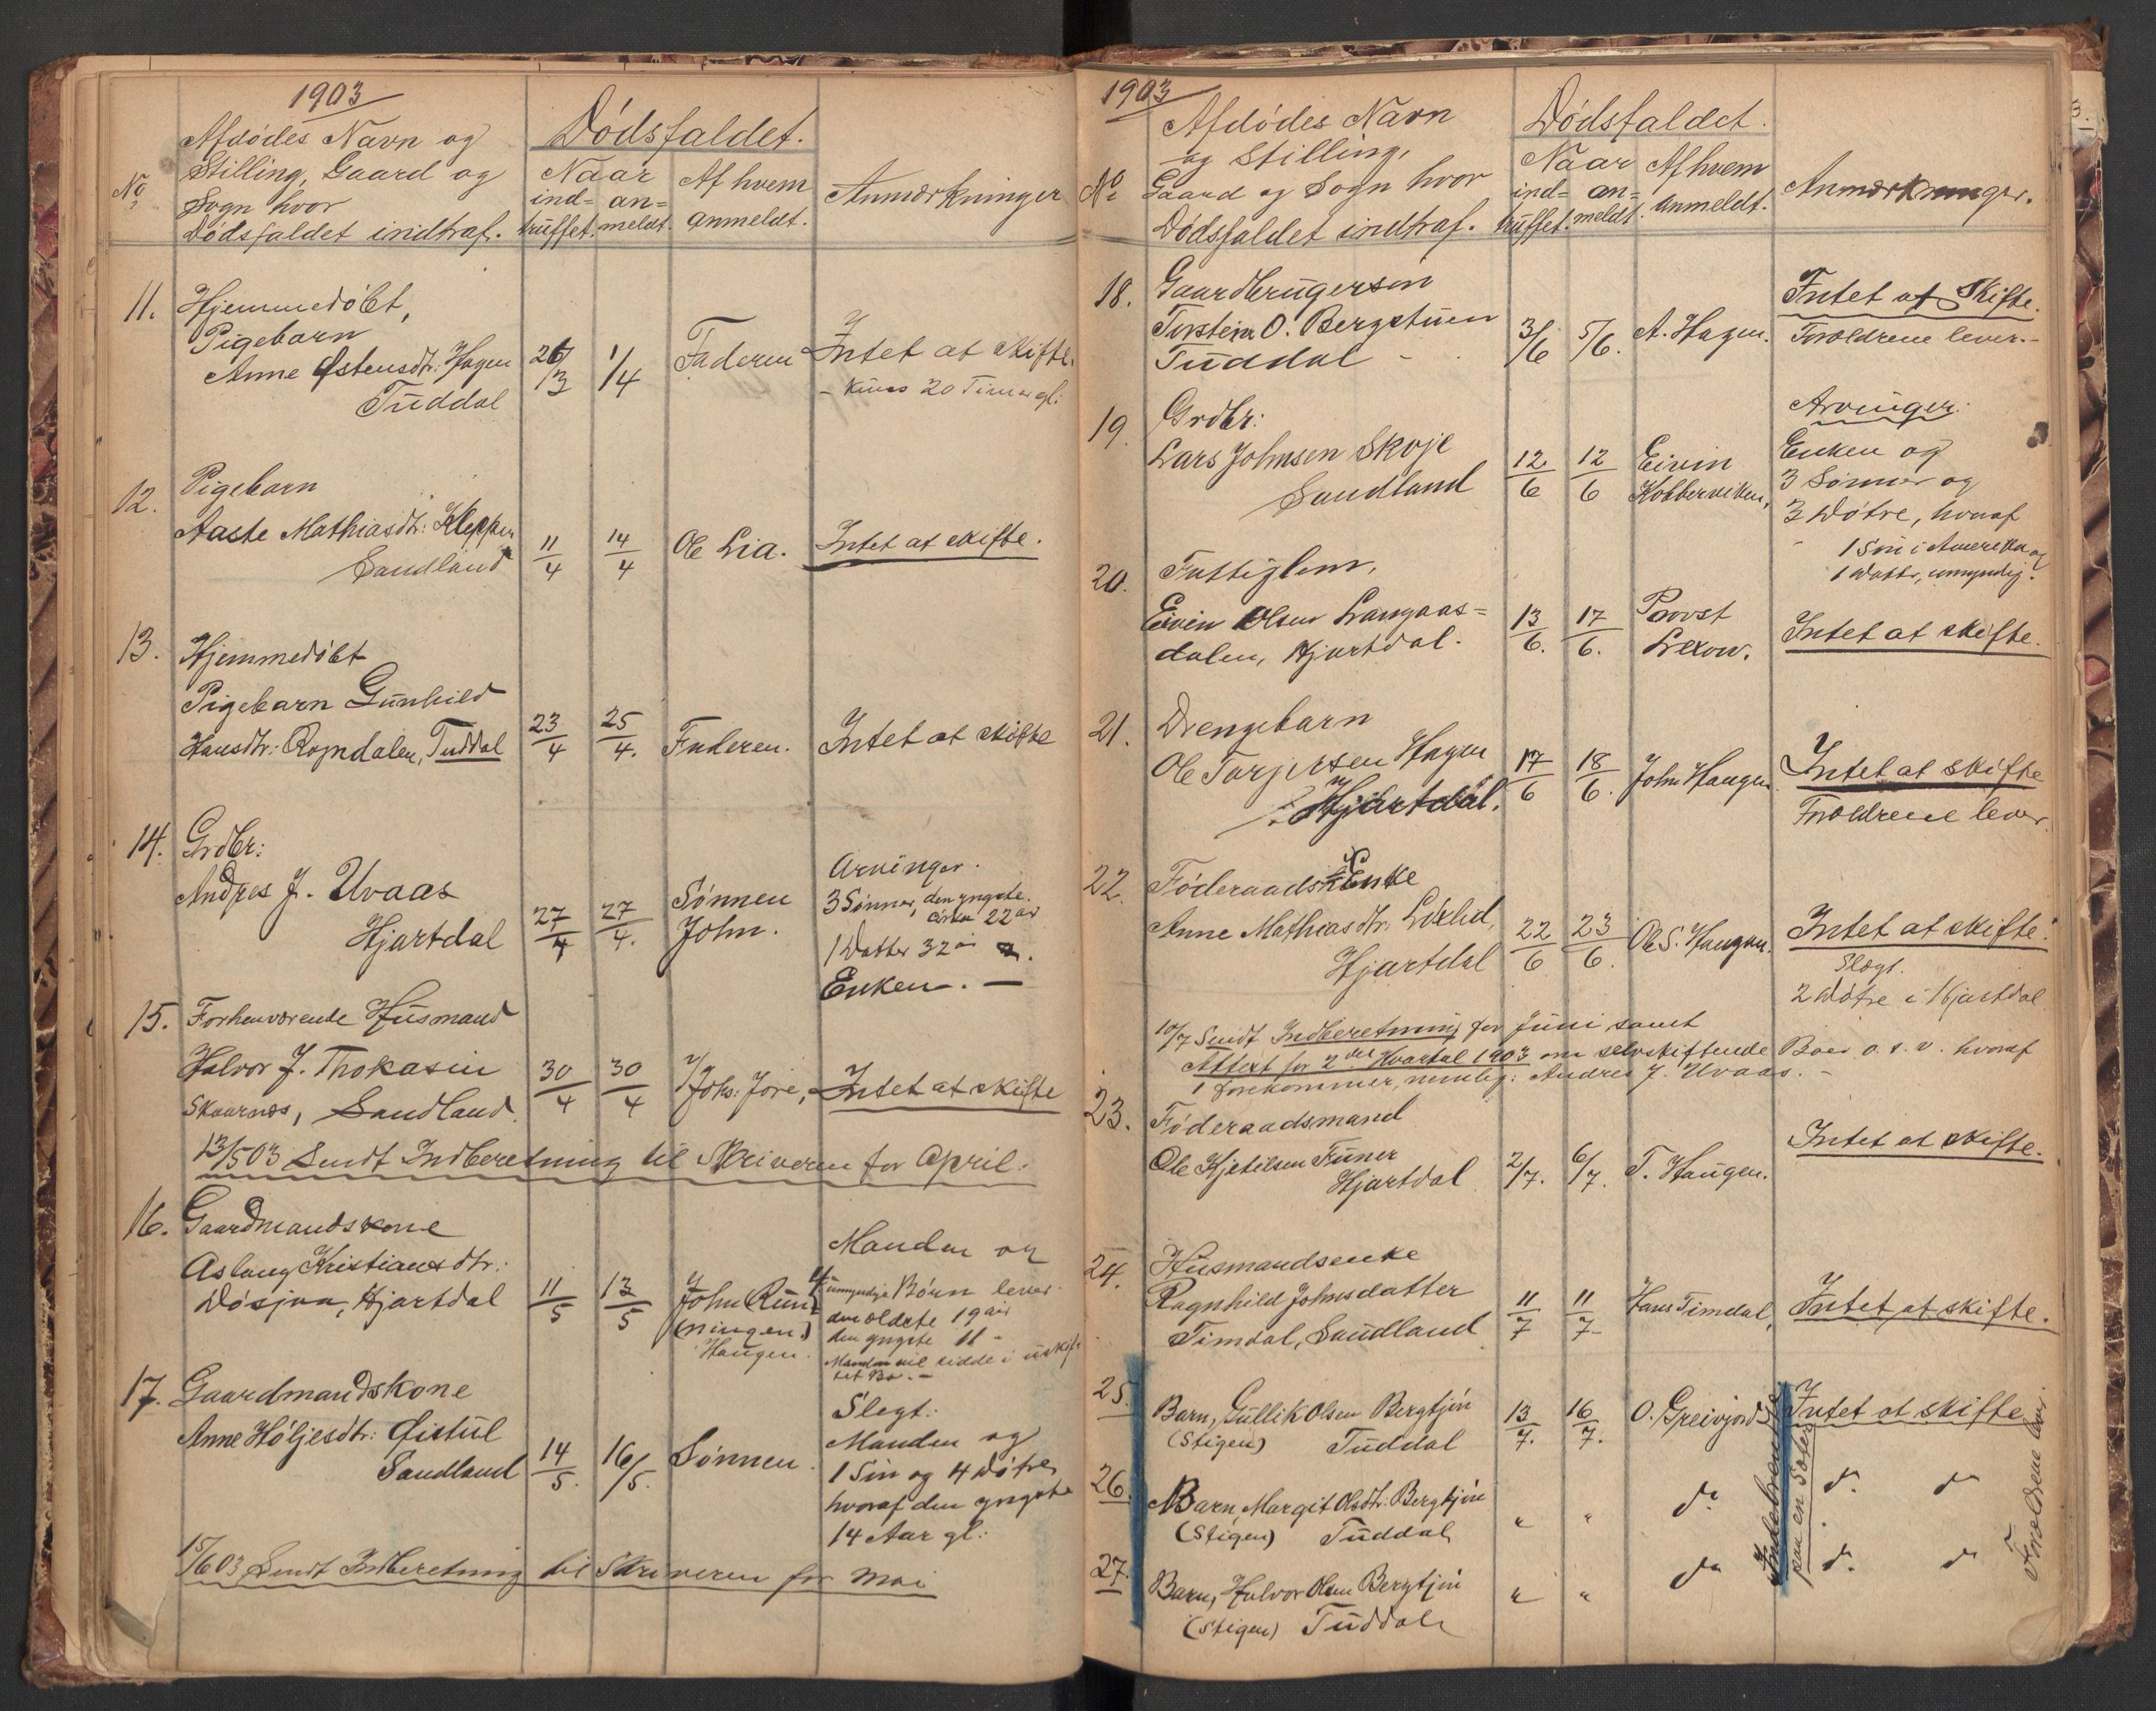 1903
No
Afdödes Navn og
Stilling, Gaard og
Sogn hvor
Dödsfaldet indtraf.
Dödsfaldet.
Naar
ind= an=
truffet. meldt.
Af hvem
anmeldt.
Anmærkninger
11. Hjemmedöbt,
Pigebarn
Anne Østensdtr: Hagen
Tuddal
26/3 1/4 Faderen Intet at skifte.
- Kuns 20 Timer gl:
12. Pigebarn
Aaste Mathiasdtr: Kleppen
Sandland
11/4 14/4 Ole Lia. Intet at skifte.
13. Hjemmedöbt
Pigebarn Gunhild
Hansdtr: Rogndalen, Tuddal
23/4 25/4. Faderen. Intet at skifte
14. Grdbr:
Andres J. Uvaas
Hjartdal
27/4 27/4. Sønnen
John.
Arvinger.
3 Sønner, den yngste
cirka 22 aar
1 Datter 32 år
Enken. —
15. Forhenværende Husmand
Halvor J. Thokasin
Skaarnes, Sandland
30/4 30/4 Johs: Jore, Intet at skifte
13/5 03 Sendt Indberetning til Skriveren for April.
16. Gaardmandskone
Aslaug Kristiansdtr:
Dösjaa, Hjartdal
11/5 13/5 John Run=
(ningen)
Haugen.
Manden og
4 umyndige Børn lever
den ældste 19 aar
den yngste 11 -
Manden vil sidde i uskif=
tet Bo. -
17. Gaardmandskone
Anne Höljesdtr: Qistul
Sandland
14/5. 16/5. Sønnen
Slegt:
Manden og
1 Sön og 4 Døtre
hvoraf den yngste
14 Aar gl:
15/6 03 Sendt Indberetning til Skriveren for Mai
1903
No
Afdödes Navn
og Stilling,
Gaard og Sogn hvor
Dödsfaldet indtraf.
Dödsfaldet.
Naar
ind= an=
truffet. meldt.
Af hvem
anmeldt.
Anmærkninger.
18. Gaardbrugersön
Torstein O. Bergstuen
Tuddal -
3/6 5/6. A. Hagen.
Intet at Skifte.
Forældrene lever.-
19. Grdbr:
Lars Johnsen Skoje
Sandland
12/6 12/6 Eivin
Kobberviken,
Arvinger:
Enken og
3 Sønner og
3 Døtre, hvoraf
1 Sön i Amerika og
1 Datter, umyndig.
20. Fattiglem,
Eivin Olsen Langaas=
dalen, Hjartdal.
13/6. 17/6. Provst
Lexow.
Intet at skifte.
21. Drengebarn
Ole Torjusen Hagen
Hjartdal.
17/6 18/6. John Haugen Intet at skifte
Forældrene lever.
22. Föderaads Enke
Anne Mathiasdtr. Lixlid,
Hjartdal
22/6 23/6. Ole S. Haugan. Intet at skifte.
Slægt.
2 Døtre i Hjartdal
10/7 Sendt Indberetning for Juni samt
Attest for 2det Kvartal 1903 om selvskiftende Boer o.s.v. hvoraf
1 forekommer, nemlig: Andres J. Uvaas. -
23. Föderaadsmand
Ole Kjetilsen Funer
Hjartdal
2/7. 6/7. T. Haugen.
Intet at skifte.
24. Husmandsenke
Ragnhild Johnsdatter
Timdal, Sandland
11/7 11/7 Hans Timdal, Intet at skifte.
25. Barn, Gullik Olsen Bergtjön
(Stigen) Tuddal
13/7. 16/7. O. Greivjord Intet at skifte
26. Barn, Margit Olsdtr: Bergtjön
(Stigen) Tuddal
" " do do do
27. Barn, Halvor Olsen Bergtjön
(Stigen) Tuddal
" " do do do
Indebrændte
paa en Sæter
Forældrene lever.